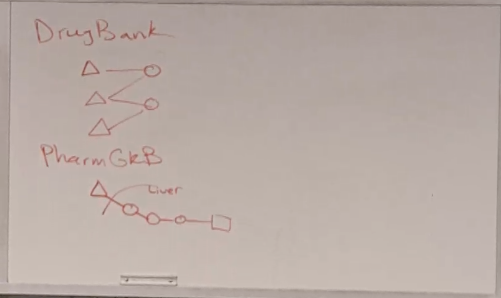 DrugBank
PharmGKB
Liver